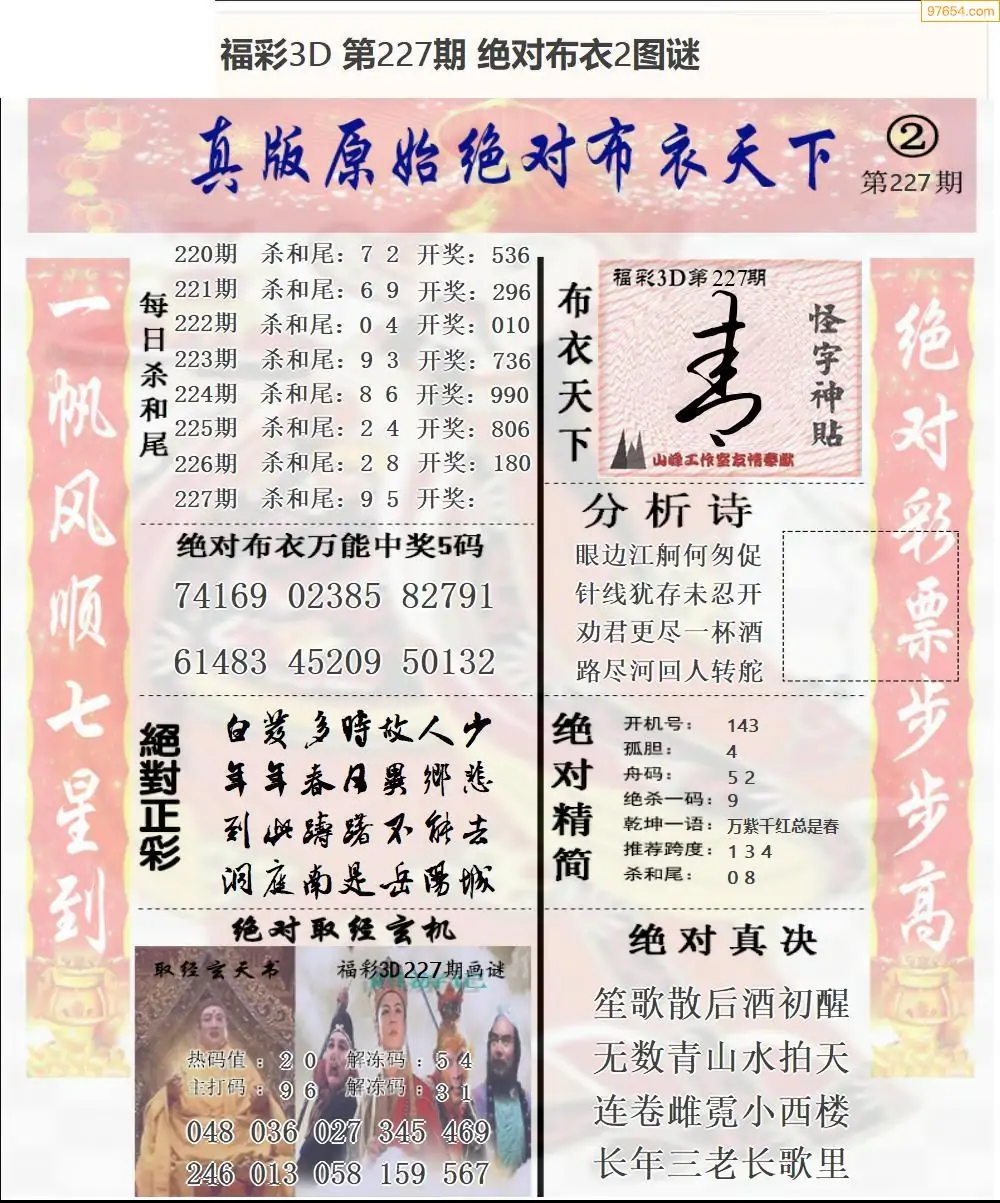 97654.com
福彩3D 第227期 绝对布衣2图谜
真版原始绝对布衣天下
②
第227期
一帆风顺七星到
每日杀和尾
220期 杀和尾：7 2 开奖：536
221期 杀和尾：6 9 开奖：296
222期 杀和尾：0 4 开奖：010
223期 杀和尾：9 3 开奖：736
224期 杀和尾：8 6 开奖：990
225期 杀和尾：2 4 开奖：806
226期 杀和尾：2 8 开奖：180
227期 杀和尾：9 5 开奖：
绝对布衣万能中奖5码
74169 02385 82791
61483 45209 50132
絕對正彩
白发多時故人少
年年春月異鄉悲
到此躊躇不能去
洞庭南是岳陽城
绝对取经玄机
取经玄天书
福彩3D227期画谜
热码值：2 0 解冻码：5 4
主打码：9 6 解冻码：3 1
048 036 027 345 469
246 013 058 159 567
布衣天下
福彩3D第227期
怪字神貼
山峰工作室友情奉献
分析诗
眼边江舸何匆促
针线犹存未忍开
劝君更尽一杯酒
路尽河回人转舵
绝对精简
开机号： 143
孤胆： 4
舟码： 5 2
绝杀一码：9
乾坤一语：万紫千红总是春
推荐跨度：1 3 4
杀和尾： 0 8
绝对真决
笙歌散后酒初醒
无数青山水拍天
连卷雌霓小西楼
长年三老长歌里
绝对彩票步步高